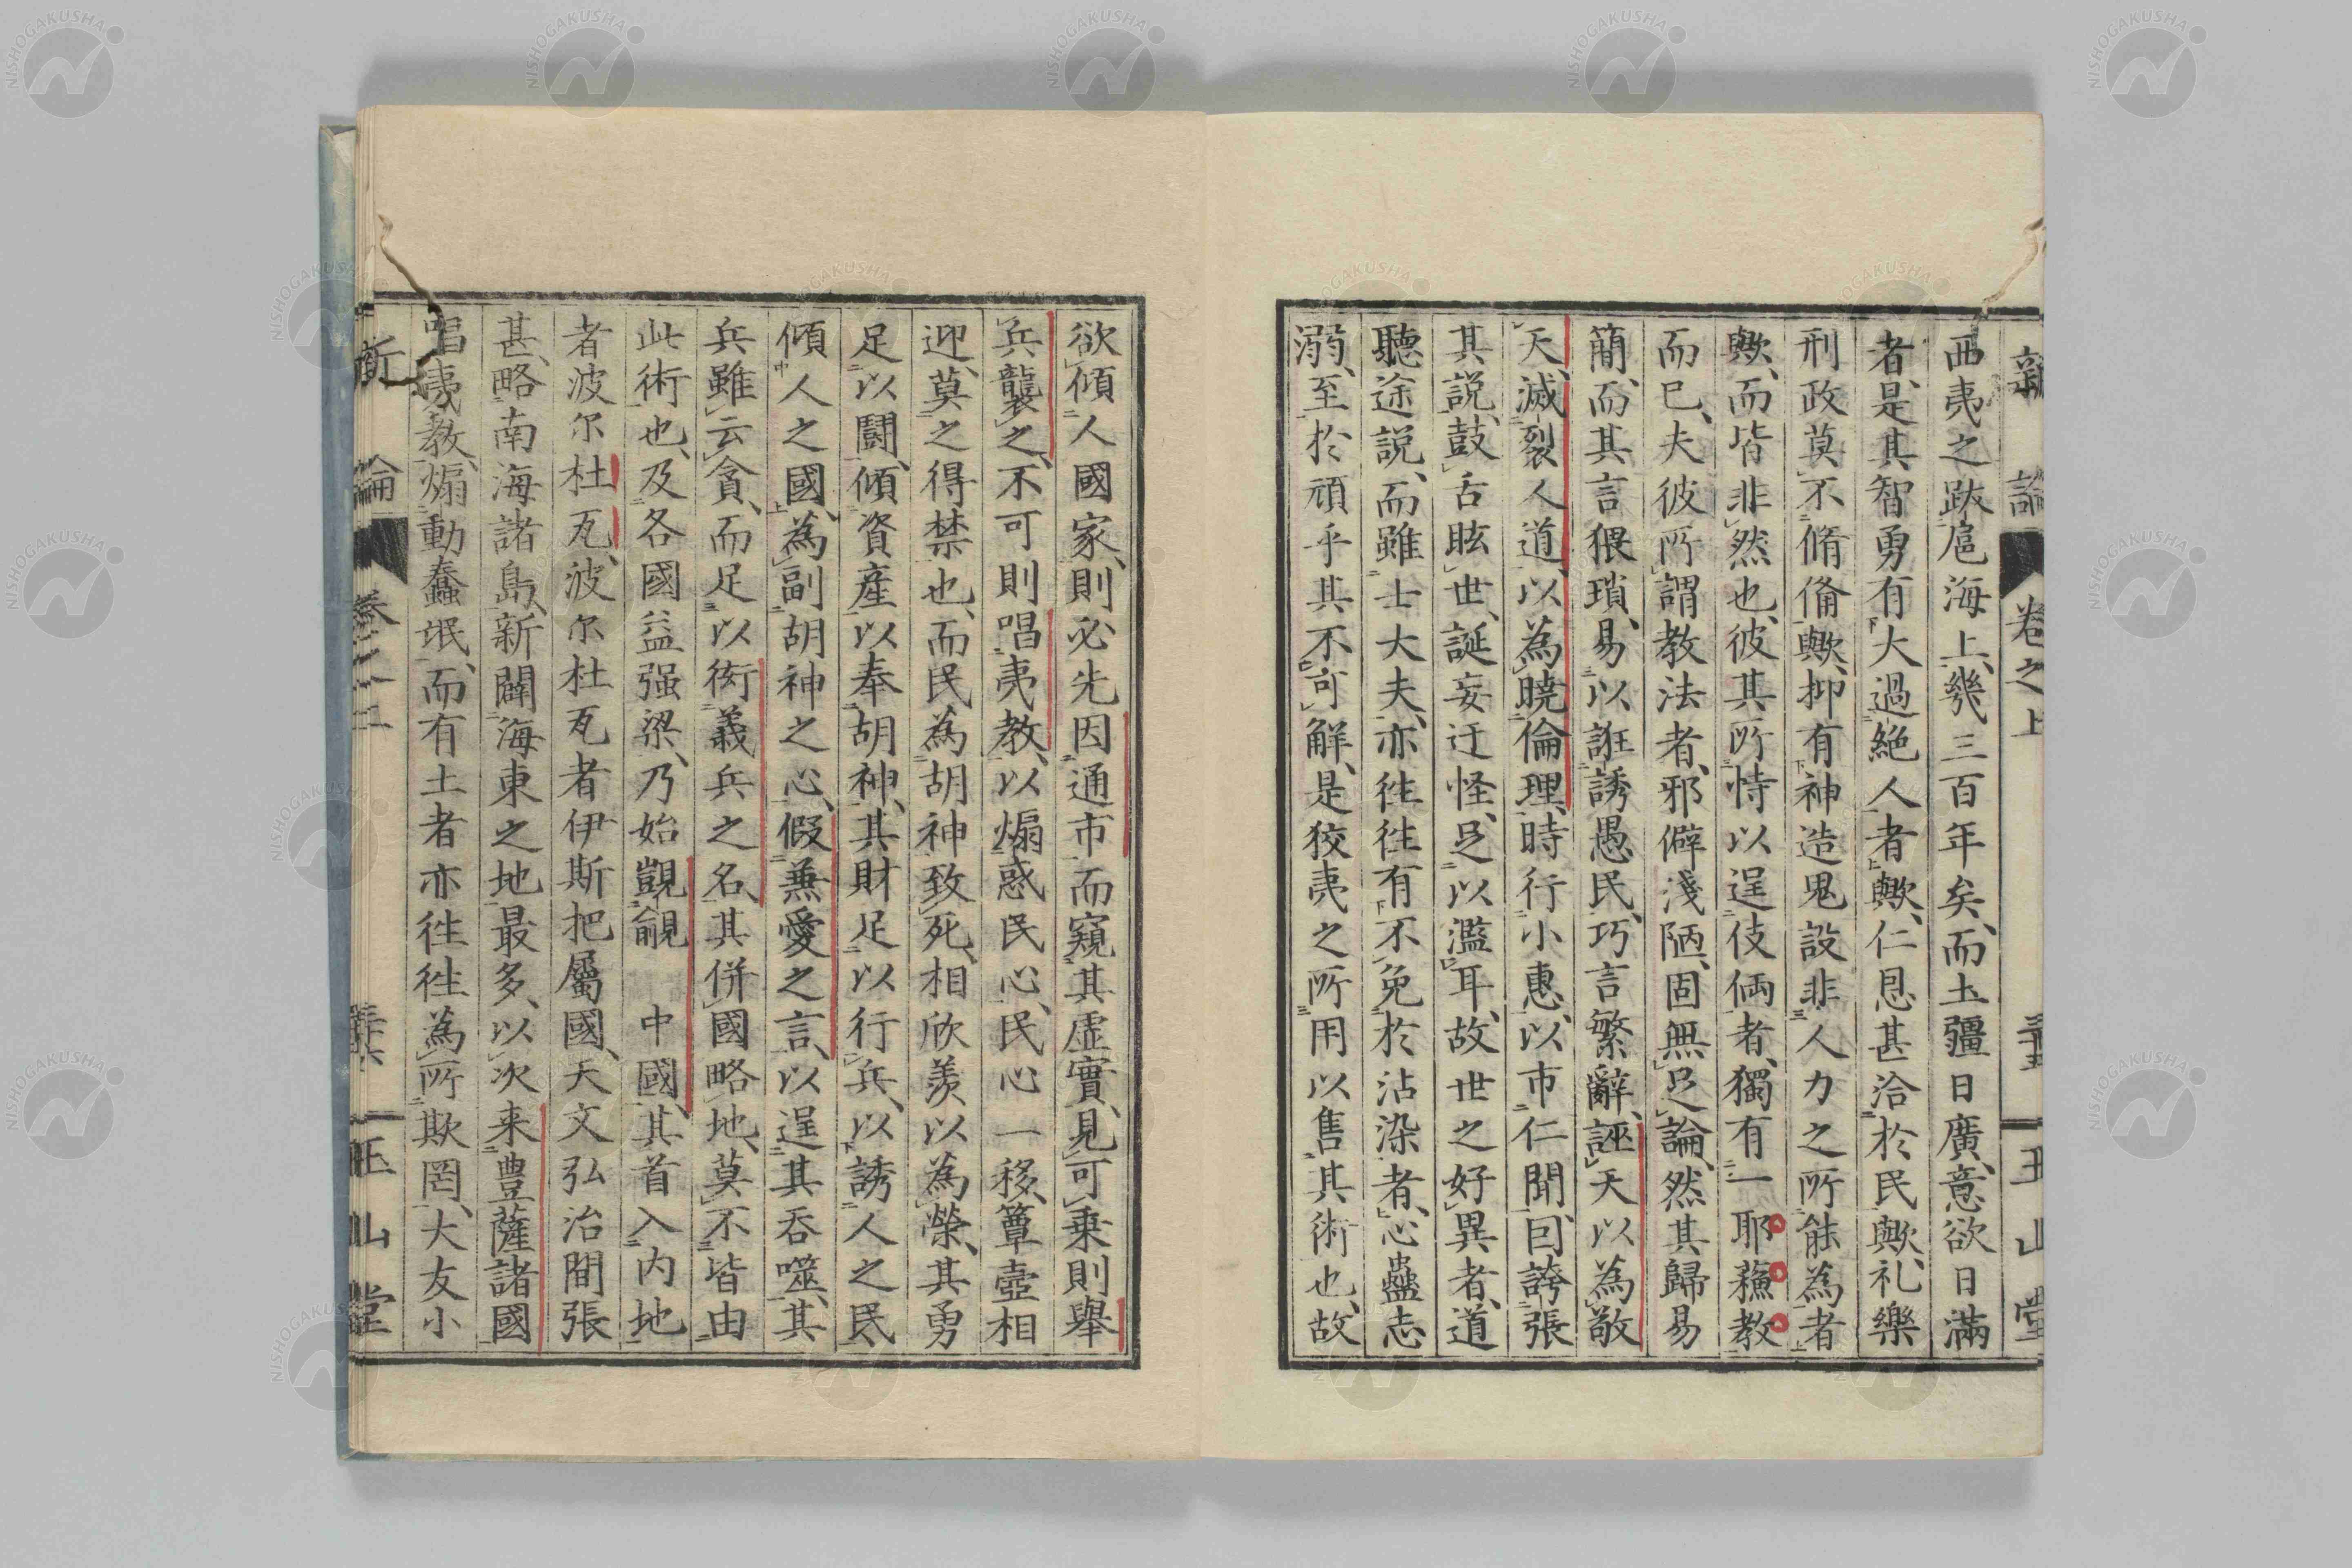 新論 卷之上 玉山堂
西夷之跋扈海上、幾三百年矣、而土疆日廣、意欲日滿
者、是其智勇有大過絕人者歟、仁恩甚洽於民歟、礼樂
刑政莫不脩備歟、抑有神造鬼設非人力之所能為者
歟、而皆非然也、彼其所恃以逞伎倆者、獨有一耶蘓教
而已、夫彼所謂教法者、邪僻淺陋、固無足論、然其歸易
簡、而其言猥瑣、易以誑誘愚民、巧言繁辭、誣天以為敬
天、滅裂人道、以為曉倫理、時行小惠、以市仁聞、囙誇張
其説、鼓舌眩世、誕妄迂怪、足以濫耳、故世之好異者、道
聽途説、而雖士大夫、亦徃徃有不免於沾染者、心蠱志
溺、至於頑乎其不可解、是狡夷之所用以售其術也、故
欲傾人國家、則必先因通市而窺其虛實、見可乗則舉
兵襲之、不可則唱夷教、以煽惑民心、民心一移、簞壺相
迎、莫之得禁也、而民為胡神致死、相欣羨以為榮、其勇
足以鬪、傾資産以奉胡神、其財足以行兵、以誘人之民、
傾人之國、為副胡神之心、假兼愛之言、以逞其吞噬、其
兵雖云貪、而足以衒義兵之名、其併國略地、莫不皆由
此術也、及各國益强梁、乃始覬覦 中國、其首入内地
者波尓杜瓦、波尓杜瓦者伊斯把屬國、天文弘治間張
甚、略南海諸島、新闢海東之地最多、以次来豊薩諸國
唱夷教、煽動蠢氓、而有土者亦徃徃為所欺罔、大友小
新論 玉山堂